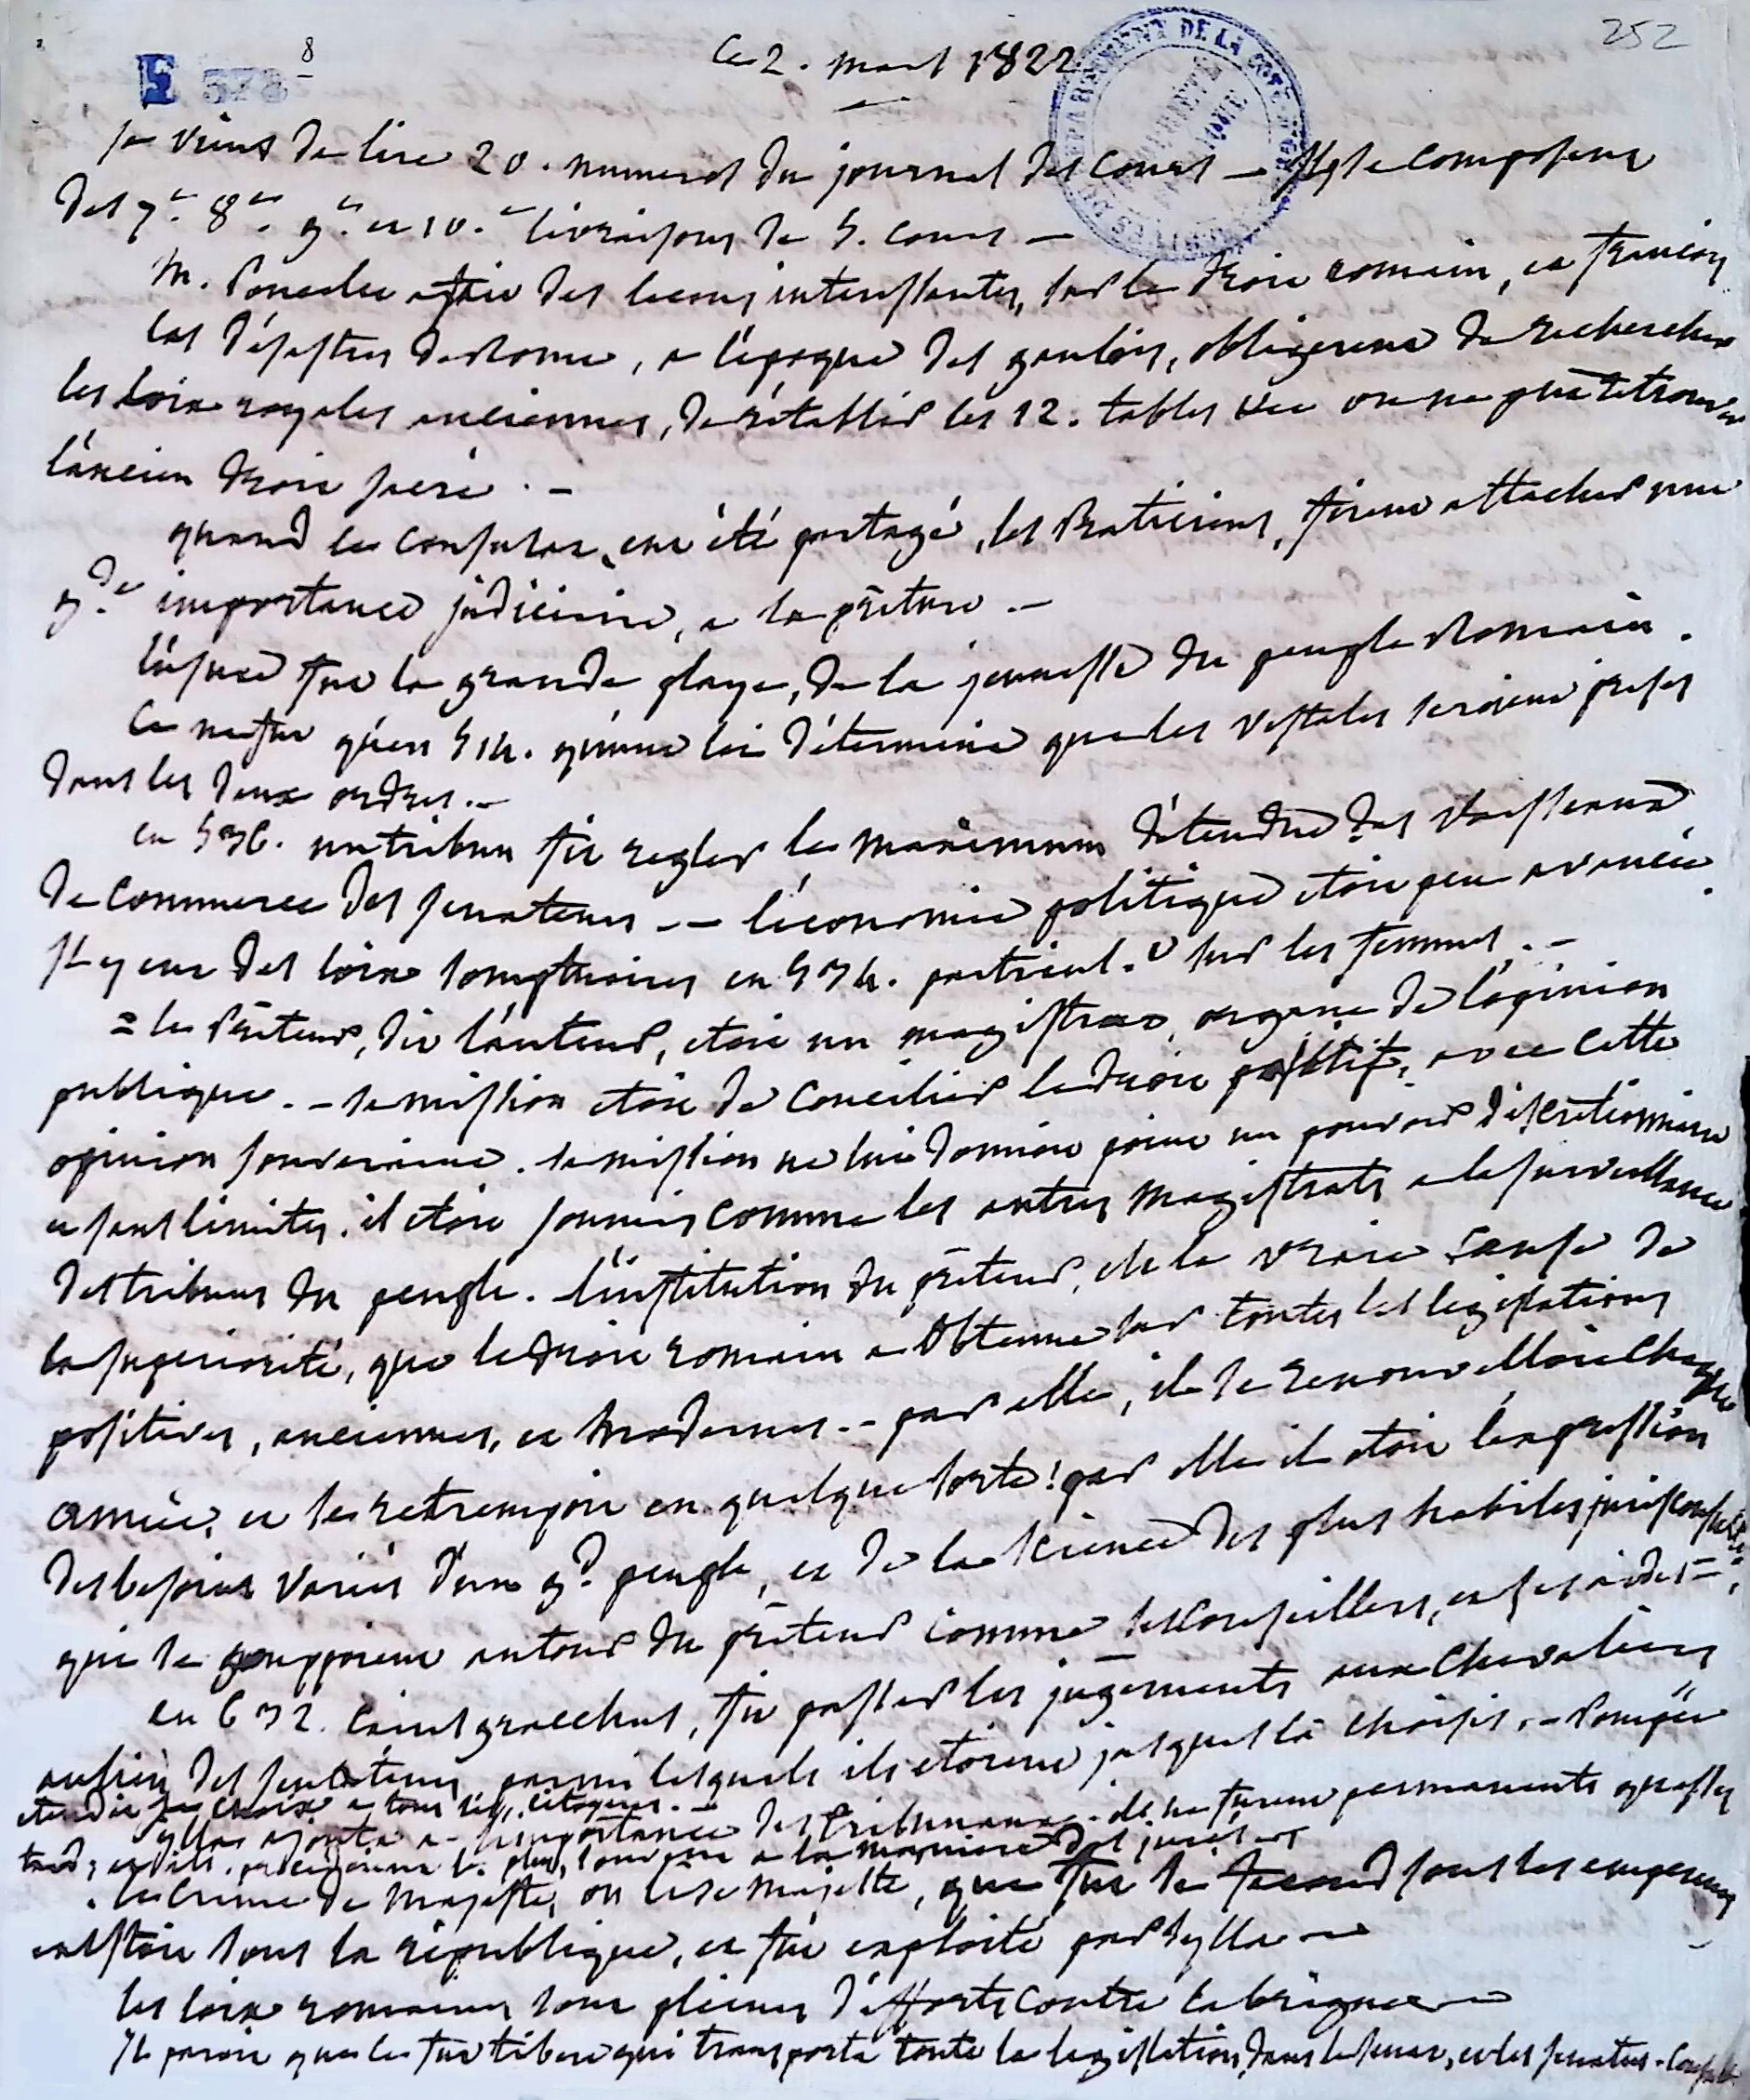 252
E 378 8
Ce 2. mars 1822
je viens de lire 20. numeros du journal des cours – ils se composent
des 7.e 8.e 9.e et 10.e livraisons de 5. cours –
M. Poncelet a fait des lecons interessantes, sur le droit romain, et françois
les désastres de Rome, a l'époque des gaulois, obligerent de rechercher
les loix royales anciennes, de rétablir les 12. tables on ne put retrouver
l'ancien droit sacré. –
quand le consulat, eut été partagé, les Patriciens, firent attacher une
g.de importance judiciaire, a la préture. –
l'usure fut la grande playe, de la jeunesse du peuple Romain.
Ce ne fut qu'en 514. qu'une loi détermina que les vestales seroient prises
dans les deux ordres. –
en 536. un tribun fit regler le maximum d'étendue des vaisseaux
de commerce des senateurs – – l'économie politique etoit peu avancée.
Il y eut des loix somptuaires en 534. particul.t sur les femmes. –
= le Préteur, dit l'auteur, etoit un magistrat, organe de l'opinion
publique. – sa mission etoit de concilier le droit positif, avec cette
opinion souveraine. sa mission ne lui donnoit point un pouvoir discrétionnaire
et sans limites. il etoit soumis comme les autres magistrats a la surveillance
des tribuns du peuple. l'institution du préteur, est la vraie cause de
la superiorité, que le droit romain a obtenue sur toutes les legislations
positives, anciennes, et modernes. – par elle, il se renouvelloit chaque
année, et se retrempoit en quelque sorte! par elle il etoit l'expression
des besoins variés d'un g.d peuple, et de la science des plus habiles jurisconsultes
qui se grouppoient autour du préteur comme ses conseillers, et ses aides =,
en 632. Caius gracchus, fit passer les jugements aux chevaliers
au lieu des senateurs parmi lesquels ils etoient jusques là choisis. – Pompée
etendit le choix a tous les citoyens. –
Sylla ajouta a l'importance des tribunaux – ils ne furent permanents que plus
tard, et ils procedoient le plus souvent a la maniere des jurés –
. le crime de Majesté, ou lèse Majesté, que fut si fécond sous les empereurs
existoit sous la république, et fut exploité par Sylla –
les loix romaines sont pleines d'efforts contre la brigue –
Il paroit que ce fut tibere qui transporta toute la legislation, dans le senat, et les senatus-consultes